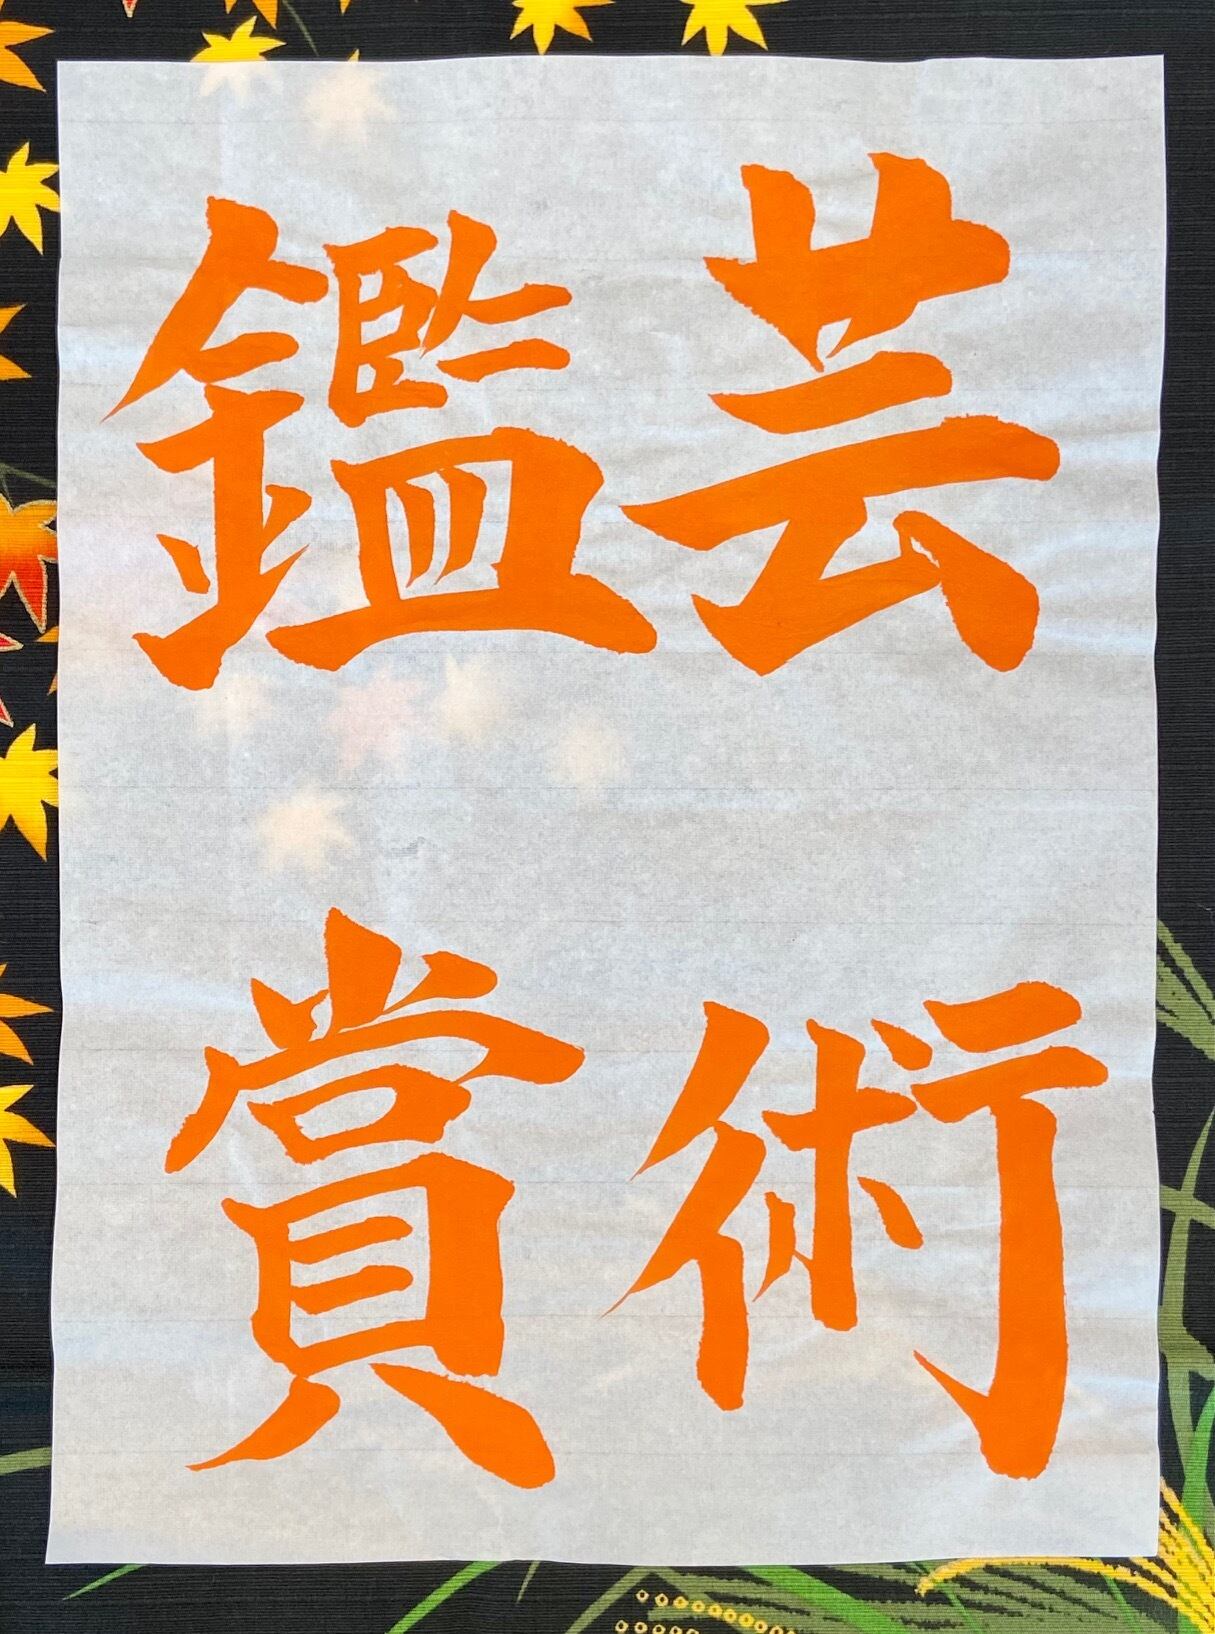 芸術
鑑賞